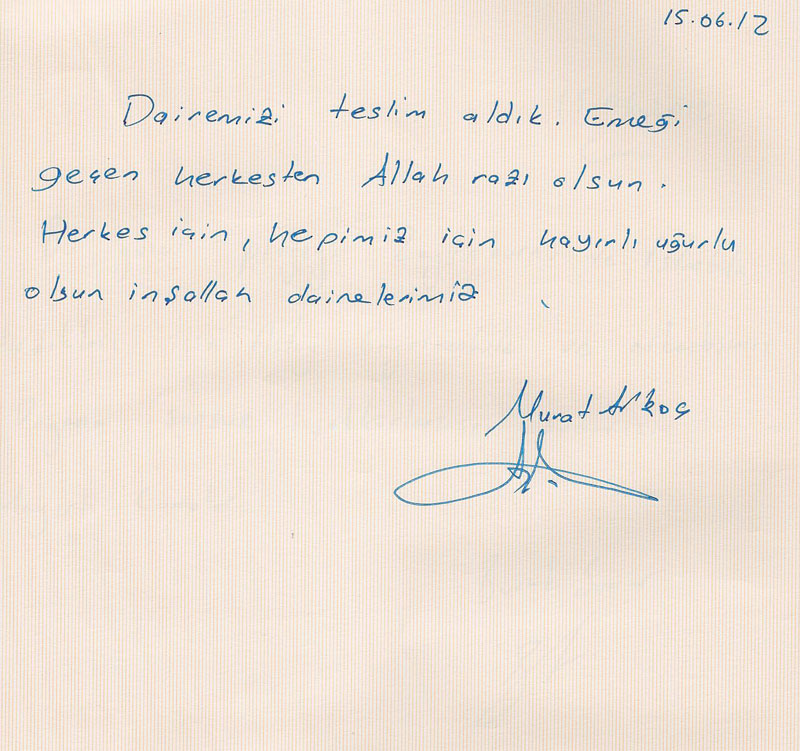 15.06.12
Dairemizi teslim aldık. Emeği
geçen herkesten Allah razı olsun.
Herkes için, hepimiz için hayırlı uğurlu
olsun inşallah dairelerimiz
Murat